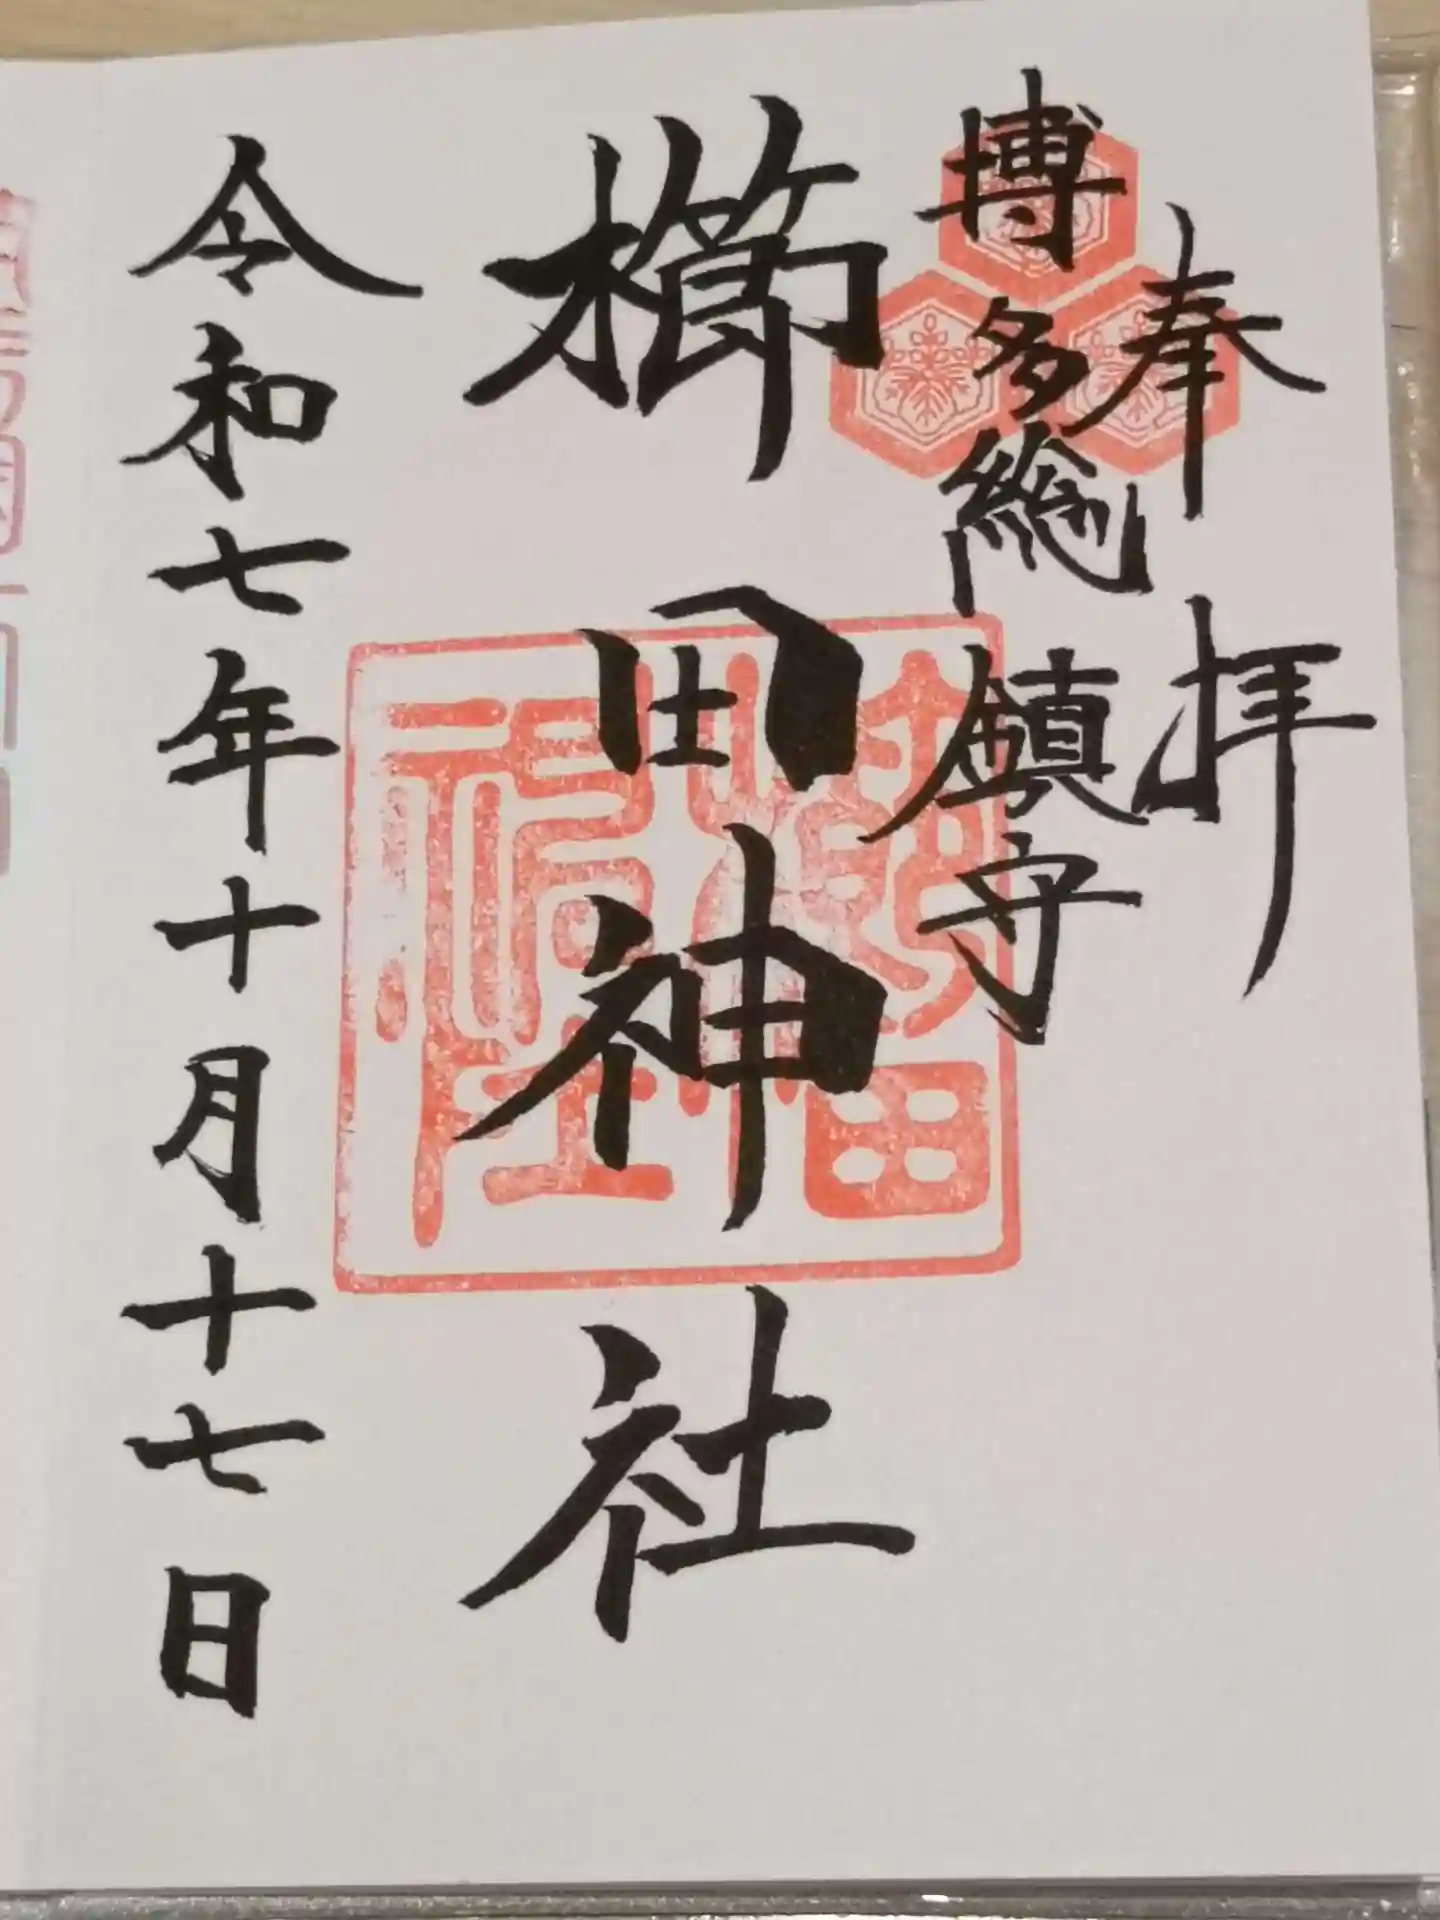 奉拝
博多総鎮守
櫛田神社
令和七年十月十七日
櫛田神社